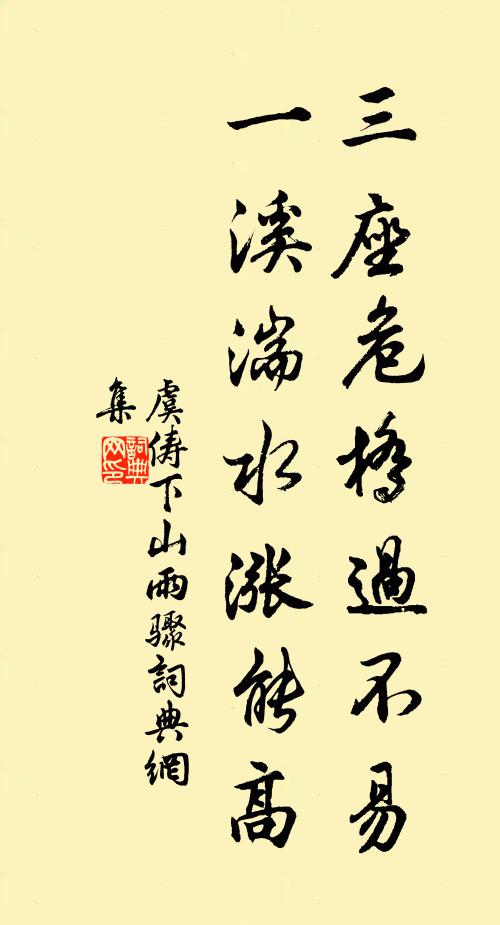 三座危橋過不易
一溪湍水漲能高
虞儔下山雨驟詞典網
集
詞典
网印